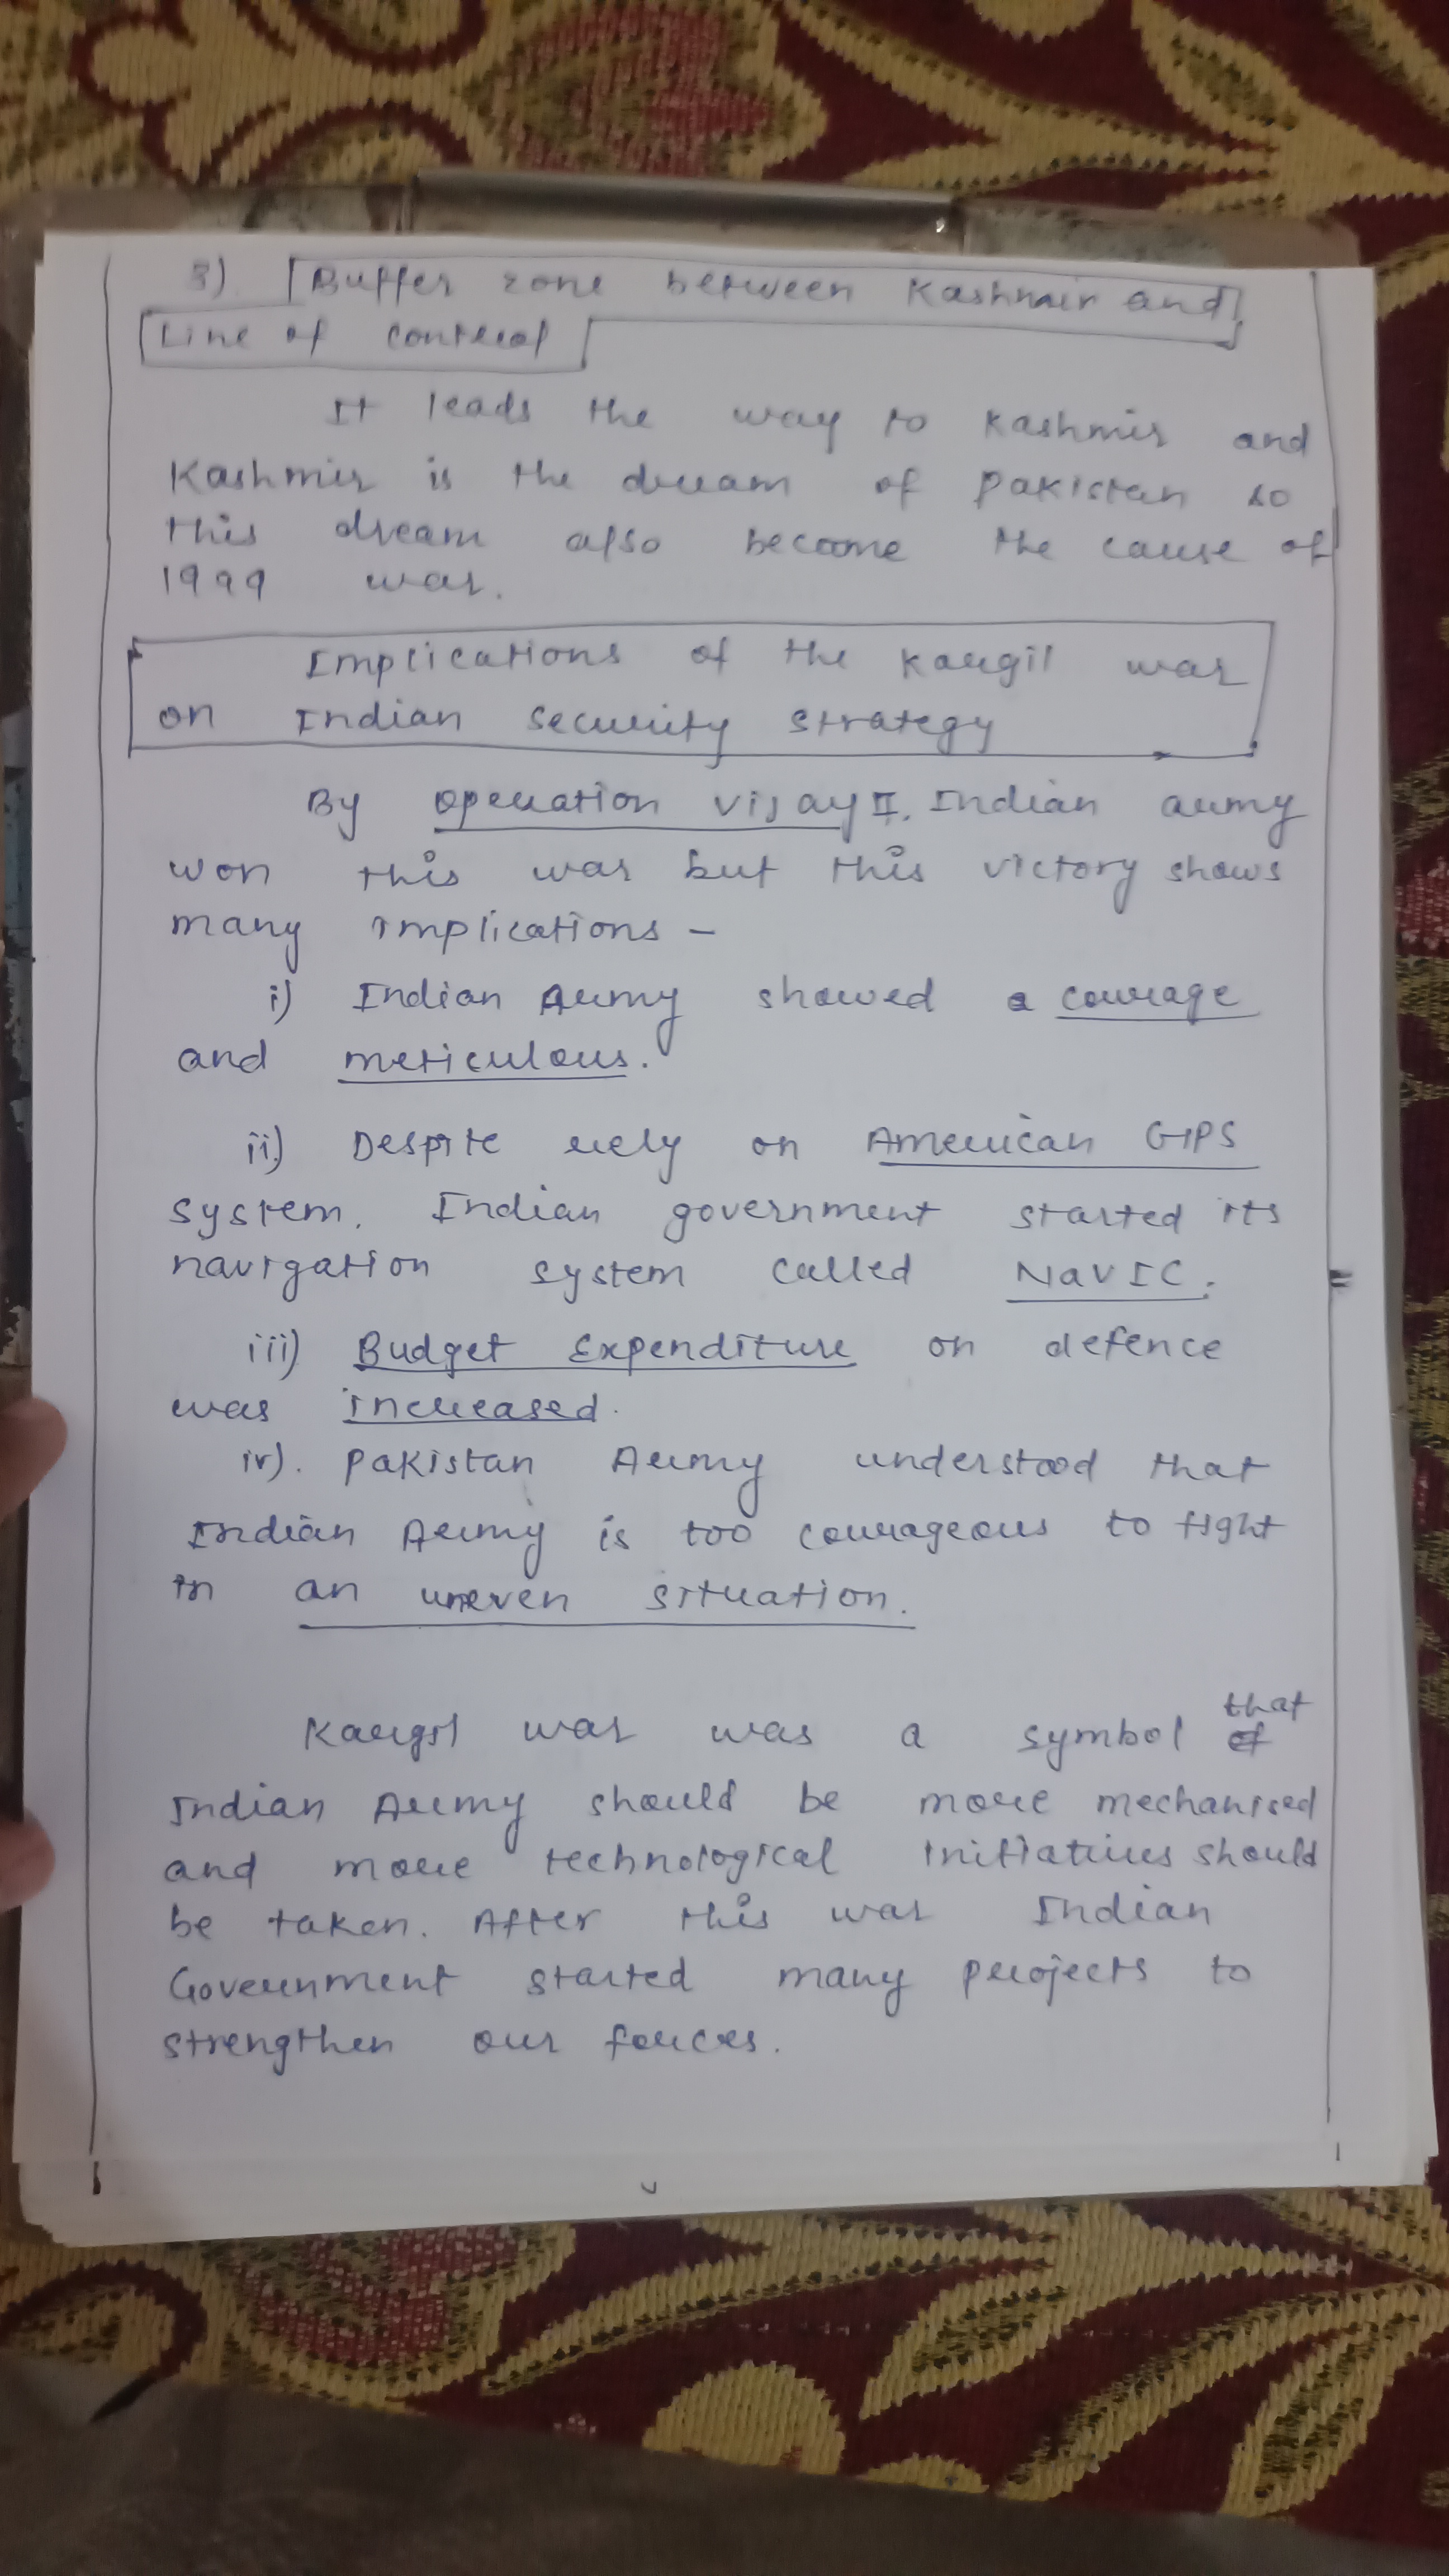 3) Buffer zone between Kashmir and
Line of control
It leads the way to Kashmir and
Kashmir is the dream of Pakistan so
this dream also become the cause of
1999 war.
Implications of the Kargil war
on Indian security strategy
By operation vijay II, Indian army
won this war but this victory shows
many implications -
i) Indian Army showed a courage
and meticulous.
ii) Despite rely on American GPS
system, Indian government started its
navigation system called NavIC.
iii) Budget Expenditure on defence
was increased.
iv). Pakistan Army understood that
Indian Army is too courageous to fight
in an uneven situation.
Kargil war was a symbol that
Indian Army should be more mechanised
and more technological initiatives should
be taken. After this war Indian
Government started many projects to
strengthen our forces.